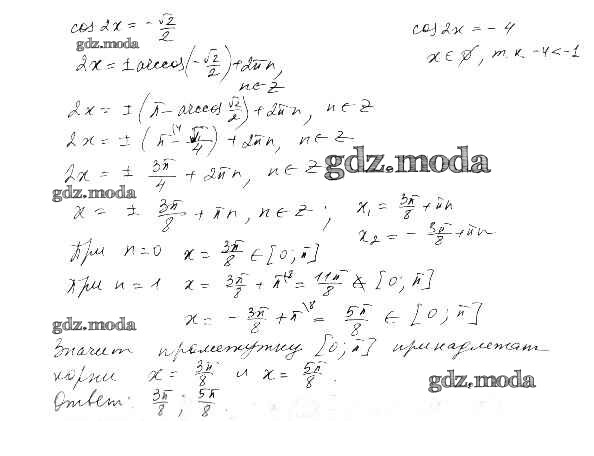 cos 2x = - √2/2
cos 2x = - 4
gdz.moda
x ∈ ∅, т.к. -4 < -1
2x = ± arccos(- √2/2) + 2πn,
n ∈ Z
2x = ± (π - arccos √2/2) + 2πn, n ∈ Z
2x = ± (π\4 - π/4) + 2πn, n ∈ Z
gdz.moda
2x = ± 3π/4 + 2πn, n ∈ Z
gdz.moda
x = ± 3π/8 + πn, n ∈ Z ; x₁ = 3π/8 + πn
x₂ = - 3π/8 + πn
При n = 0 x = 3π/8 ∈ [0; π]
При n = 1 x = 3π/8 + π\8 = 11π/8 ∉ [0; π]
x = - 3π/8 + π\8 = 5π/8 ∈ [0; π]
gdz.moda
Значит промежутку [0; π] принадлежат
корни x = 3π/8 и x = 5π/8 .
gdz.moda
Ответ: 3π/8 ; 5π/8 .